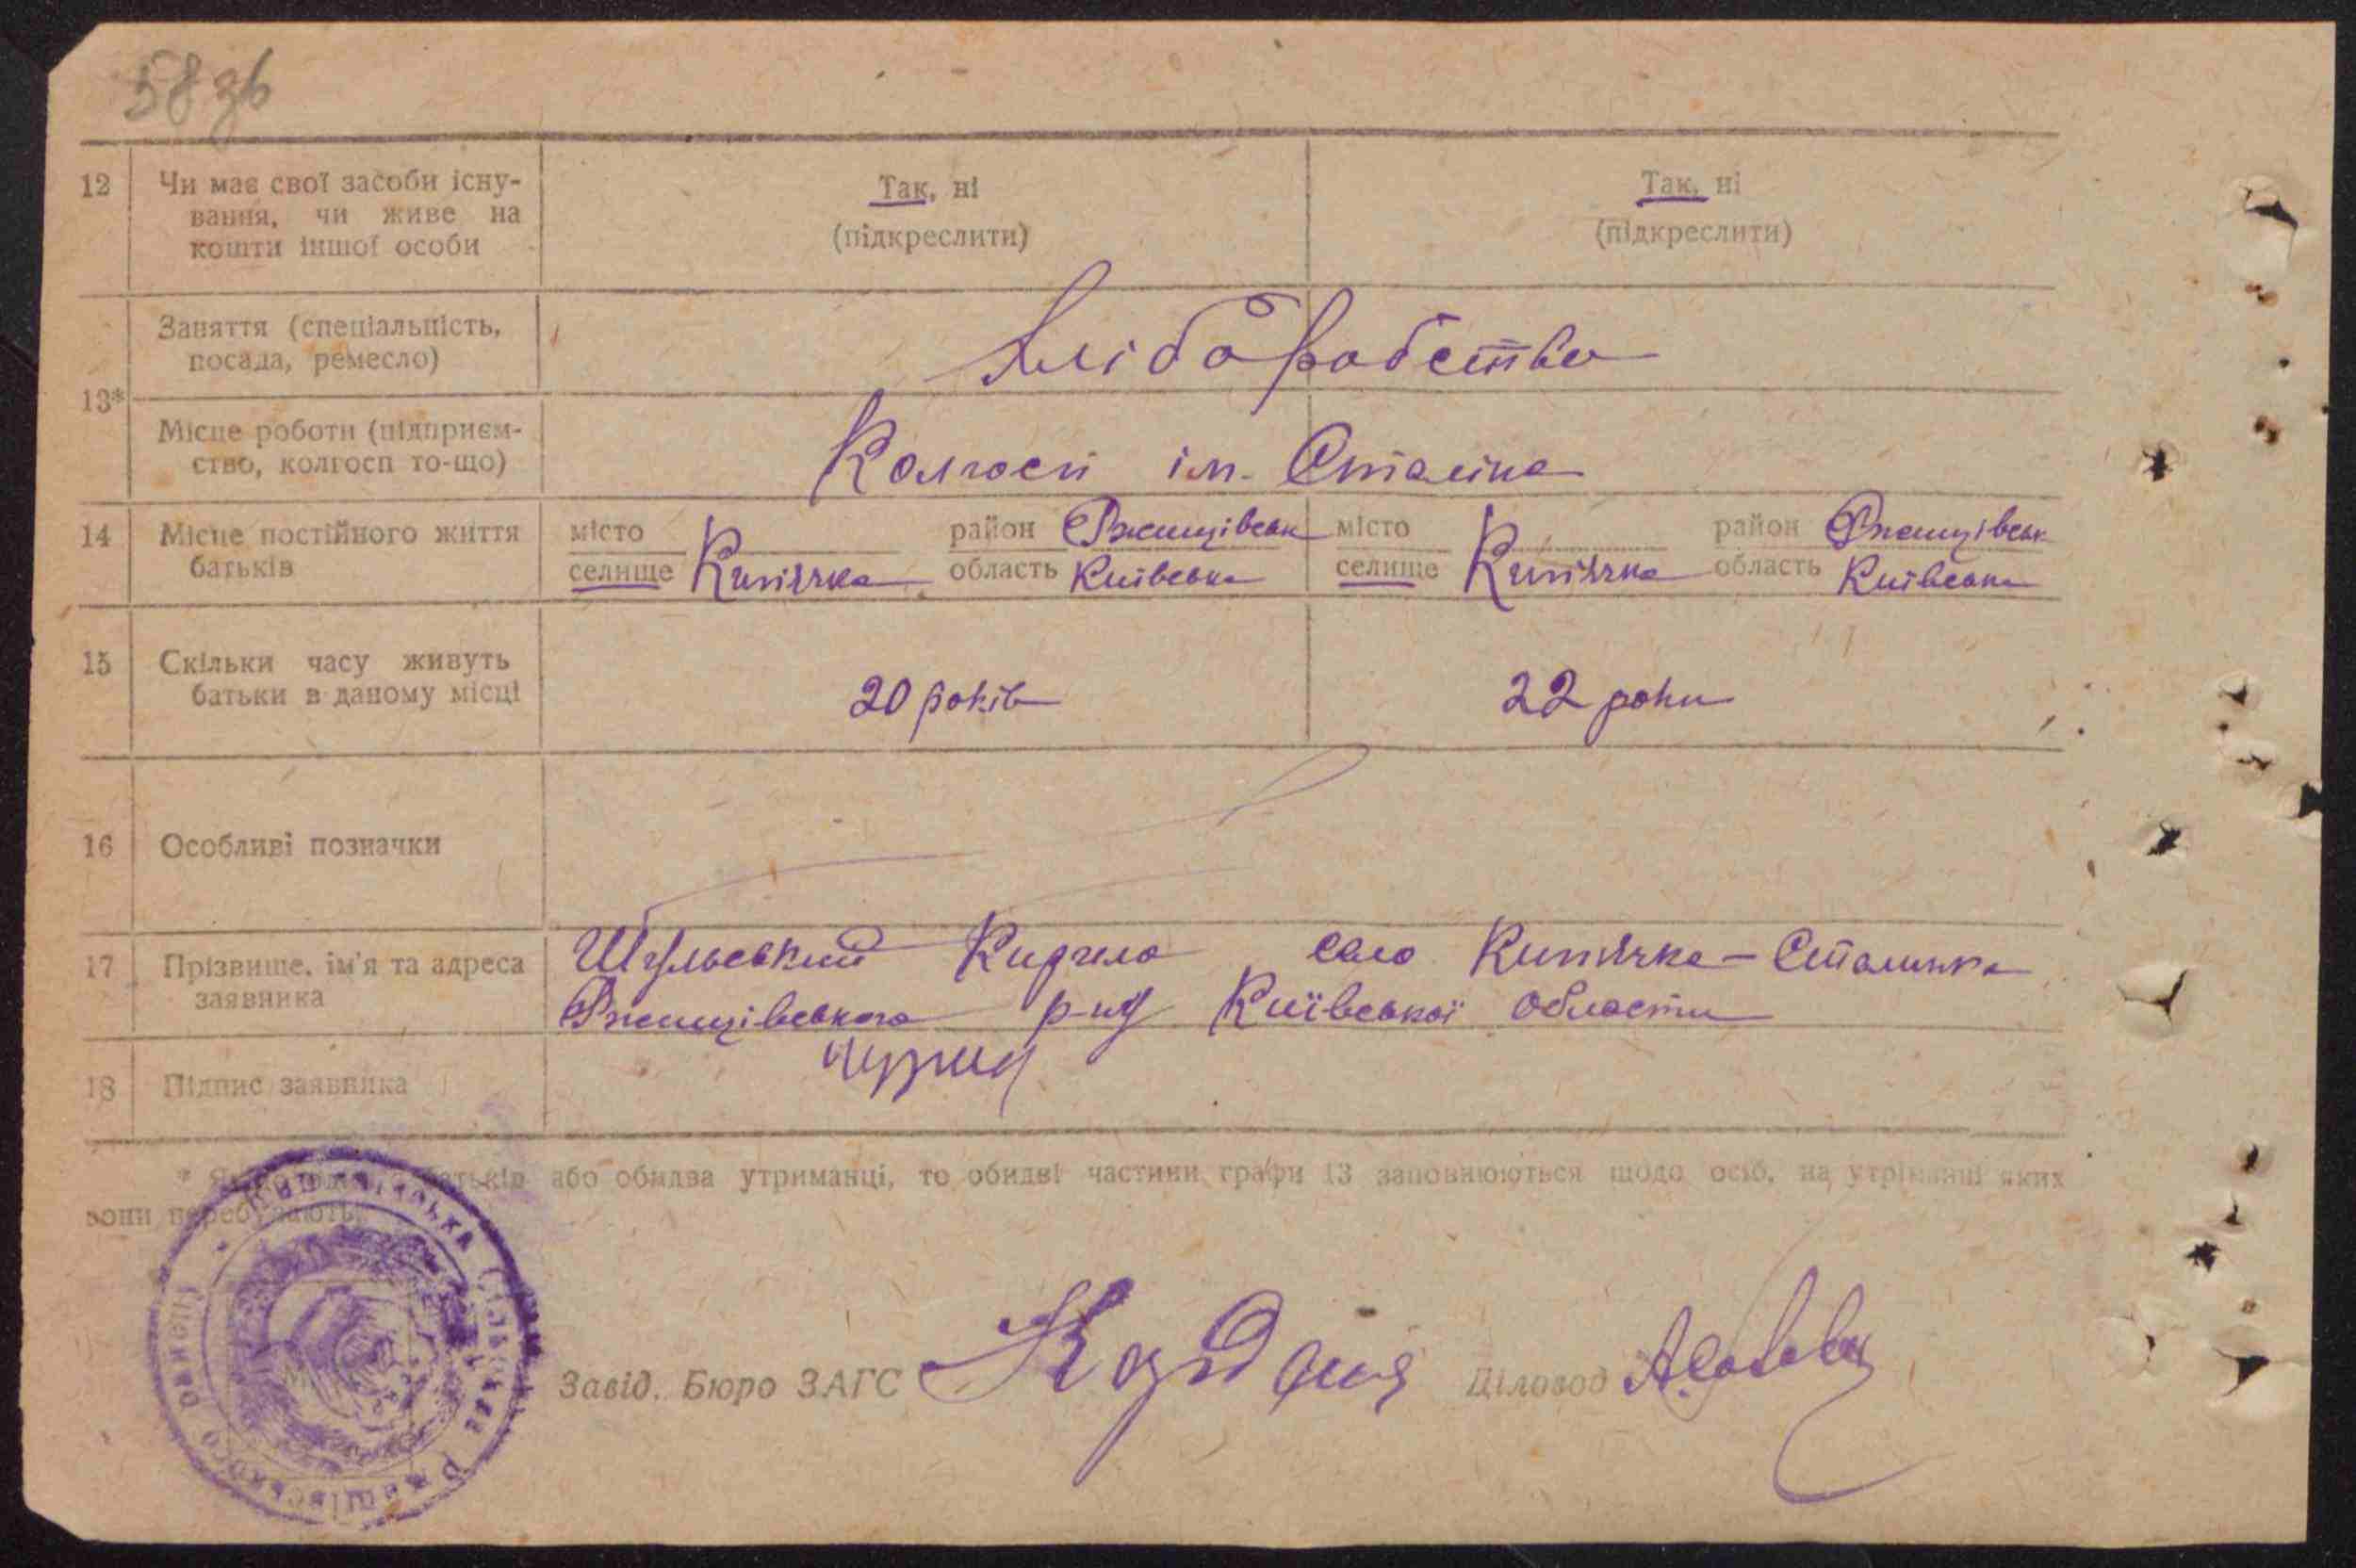 58 зв
12 Чи має свої засоби існу- Так, ні Так, ні
вання, чи живе на (підкреслити) (підкреслити)
кошти іншої особи
13* Заняття (спеціальність, Хліборобство
посада, ремесло)
Місце роботи (підприєм- Колгосп ім. Сталіна
ство, колгосп то-що)
14 Місце постійного життя місто район Ржищівськ місто район Ржищівськ
батьків селище Кипячка область Київська селище Кипячка область Київська
15 Скільки часу живуть 20 років 22 роки
батьки в даному місці
16 Особливі позначки
17 Прізвище, ім'я та адреса Шульський село Кипячка-Сталинка
заявника Ржищівського р-ну Київської области
18 Підпис заявника
* або обидва утриманці, то обидві частини графи 13 заповнюються щодо осіб, на утриманні яких
вони перебувають
Завід. Бюро ЗАГС Діловод